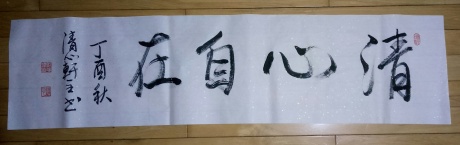 清心自在
丁酉秋
清心軒主书